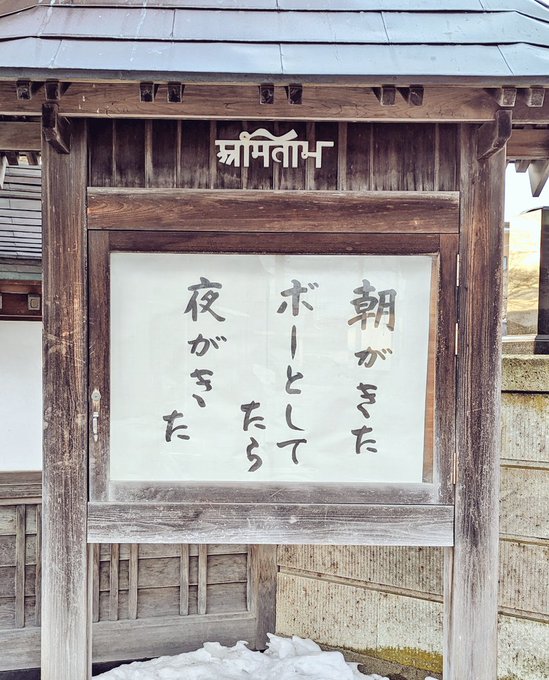 अमिताभ
朝がきた
ボーとして
たら
夜がきた